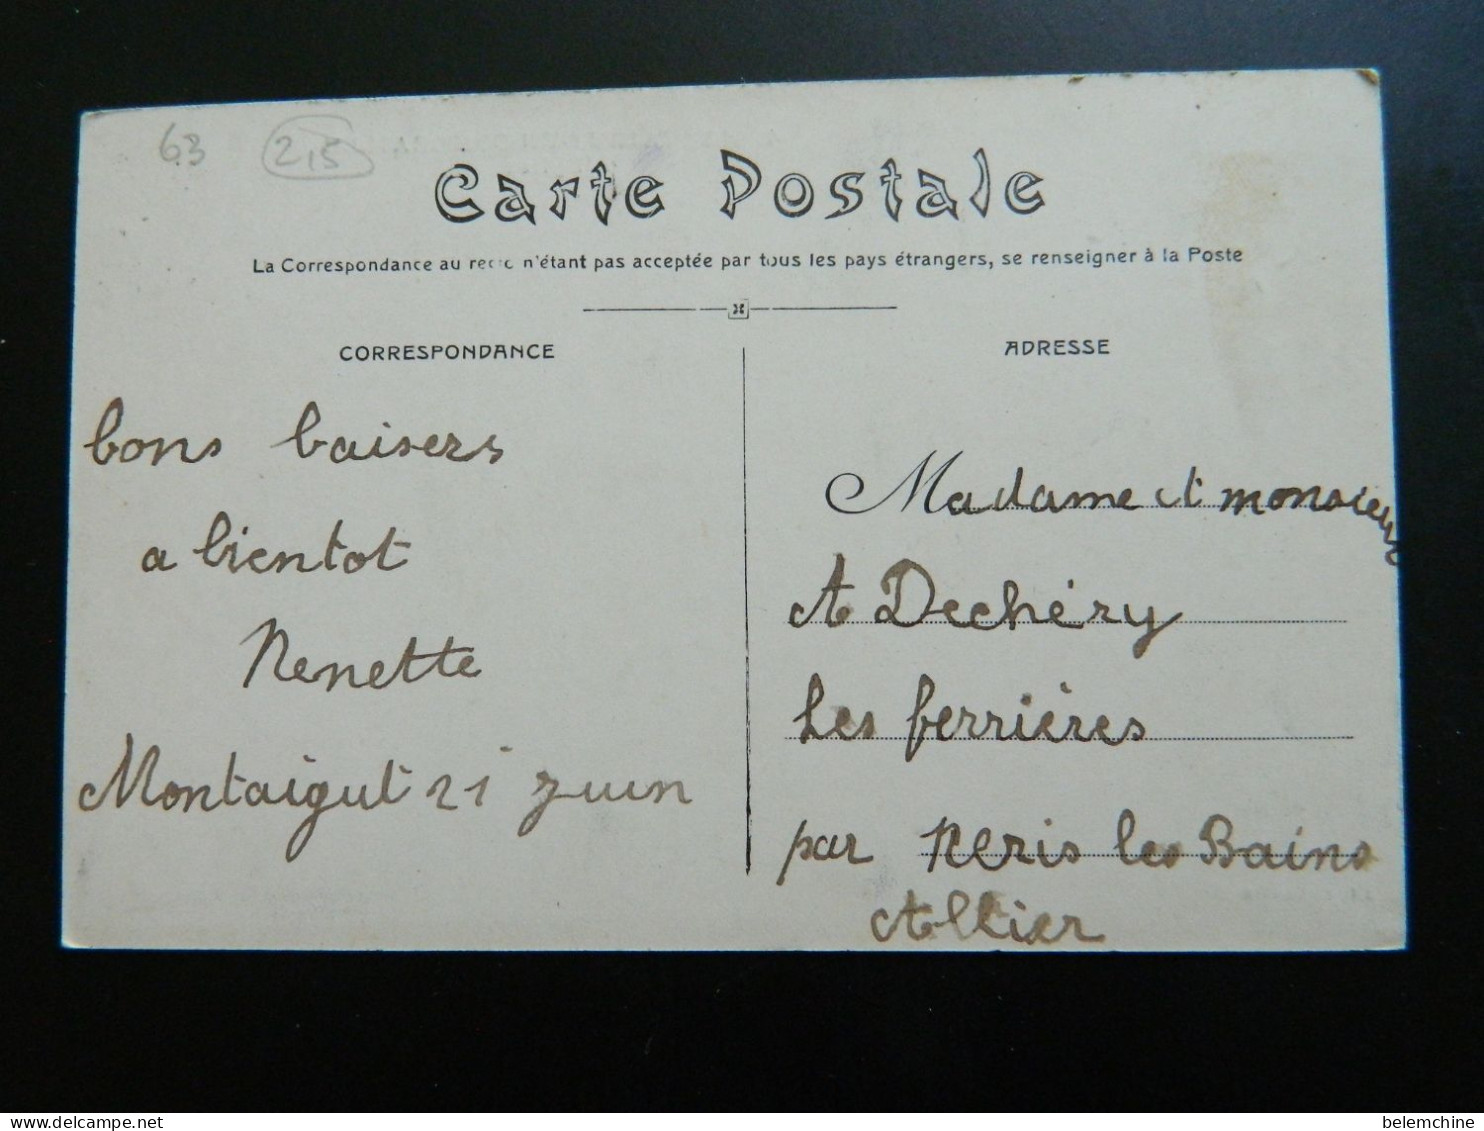 63 2,5
Carte Postale
La Correspondance au recto n'étant pas acceptée par tous les pays étrangers, se renseigner à la Poste
CORRESPONDANCE
bons baisers
a bientot
Nenette
Montaigut 21 juin
ADRESSE
Madame et monsieur
A Dechéry
Les ferrières
par Neris les Bains
Allier
www.delcampe.net
belemchine